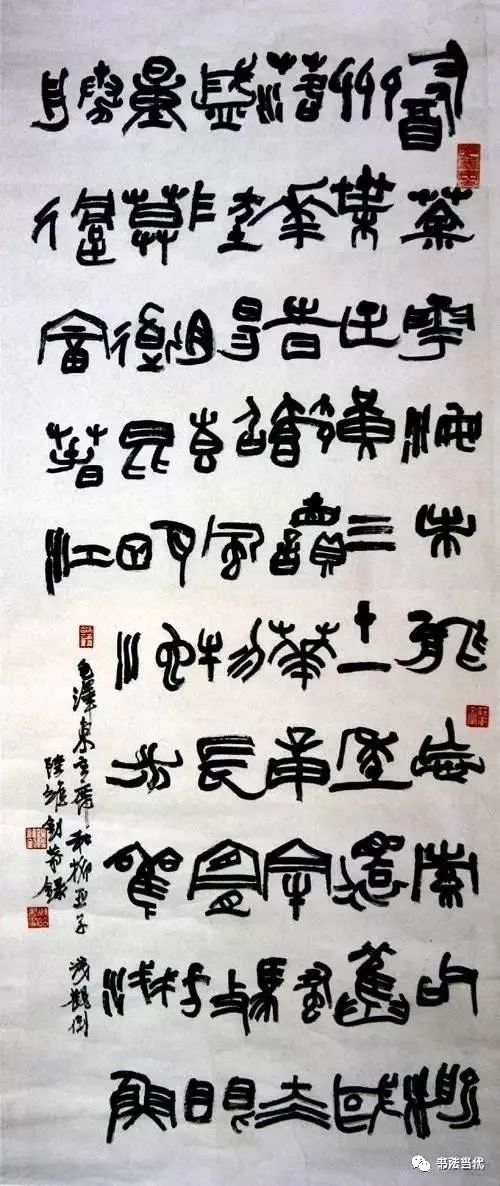 飲茶粵海未能忘索句渝
州葉正黃三十一年還舊國
落花時節讀華章牢騷太
盛防腸斷風物長宜放眼
量莫道昆明池水觀淺魚
勝過富春江
毛澤東主席和柳亞子 淺觀倒
陸維釗敬錄
书法当代